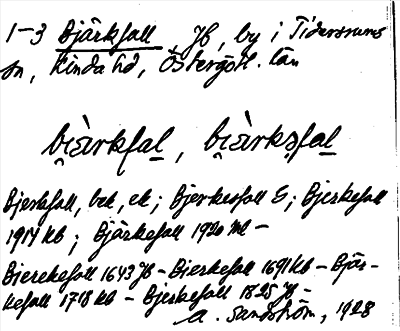 1-3 Bjärkfall, Jb, by i Tidersrums
sn, Kinda hd, Östergötl. län
bi̯ärkfal, bi̯ärkəfal
Bjerkfall, bek, ek; Bjerkesfall G; Bjerkefall
1917 kb; Bjärkefall 1920 ml -
Bierekefall 1643 Jb - Bierkefall 1691 kb - Bjär-
kefall 1718 kb - Bjerkefall 1825 Jb -
A. Sandström, 1928